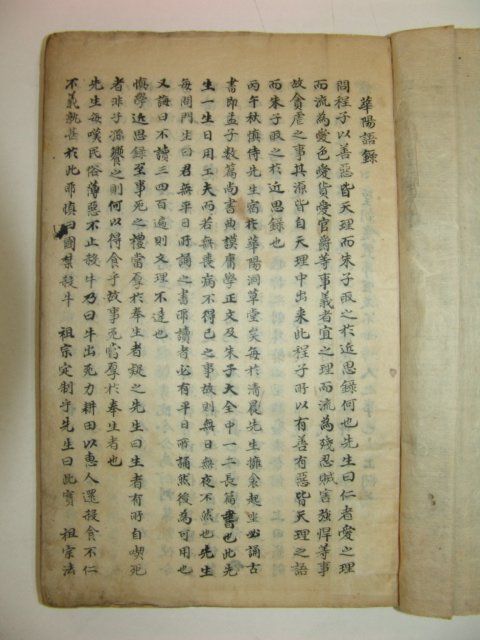 華陽語錄
問程子以善惡皆天理而朱子取之於近思錄何也先生曰仁者愛之理
而流為愛色愛貨愛官爵等事義者宜之理而流為殘忍賊害強悍等事
故貪虐之事其源皆自天理中出來此程子所以有善有惡皆天理之語
而朱子取之於近思錄也
丙午秋慎侍先生宿於華陽洞草堂矣每於清晨先生擁衾起坐必誦古
書即孟子數篇尚書典謨庸學正文及朱子大全中一二長篇書也此先
生一生日用工夫而若無喪病不得已之事故則無日無夜不然也先生
每問門生曰君無平日所誦之書耶讀者必有平日所誦然後為可用也
又誨曰不讀三四百遍則文理不達也
慎學近思錄至事死之禮當厚於奉生者疑之先生曰生者有所自喫死
者非子孫饗之則何以得食乎故事死當厚於奉生者也
先生每嘆民俗薄惡不止殺牛乃曰牛出死力耕田以惠人還殺食不仁
不義孰甚於此耶慎曰國禁殺牛 祖宗定制乎先生曰此實 祖宗法